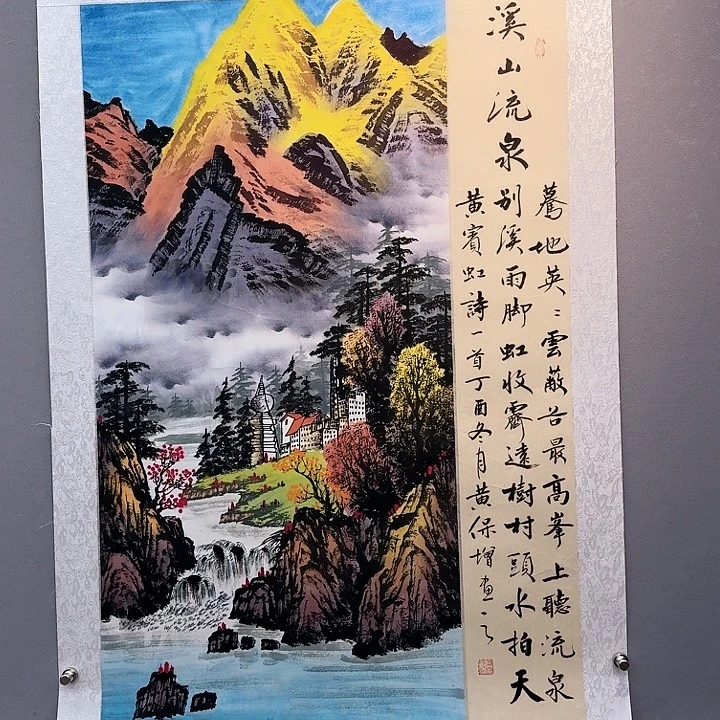 溪山流泉
驀地英〻雲蔽谷最高峯上聽流泉
别溪雨脚虹收霽遠樹村頭水拍天
黄賓虹詩一首丁酉冬月黄保增畫之